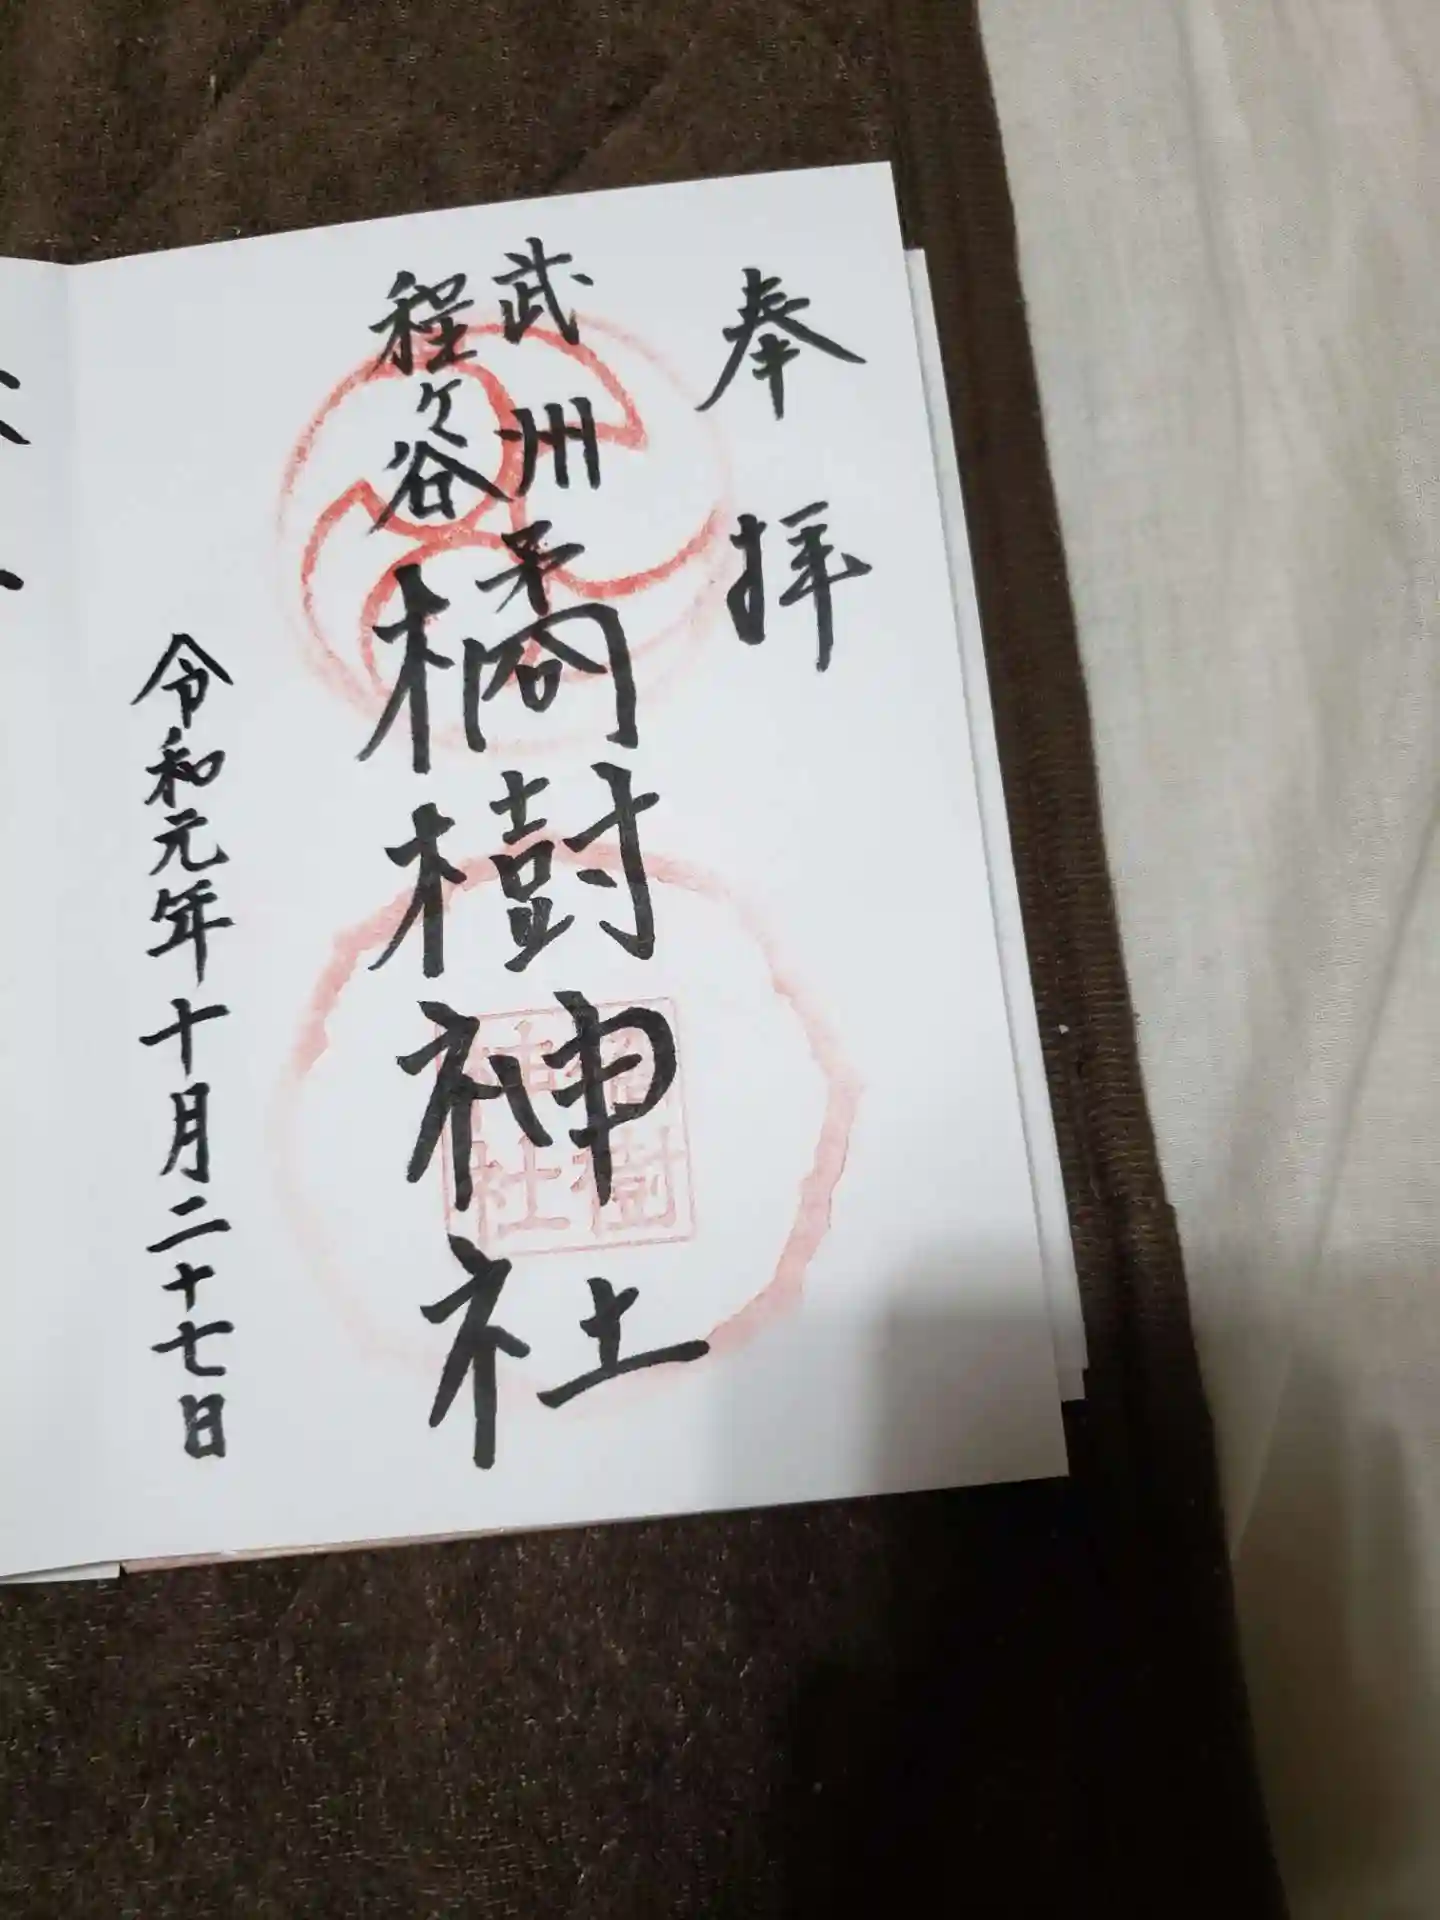 奉拝
武州
程ヶ谷
橘樹神社
橘樹
神社
令和元年十月二十七日